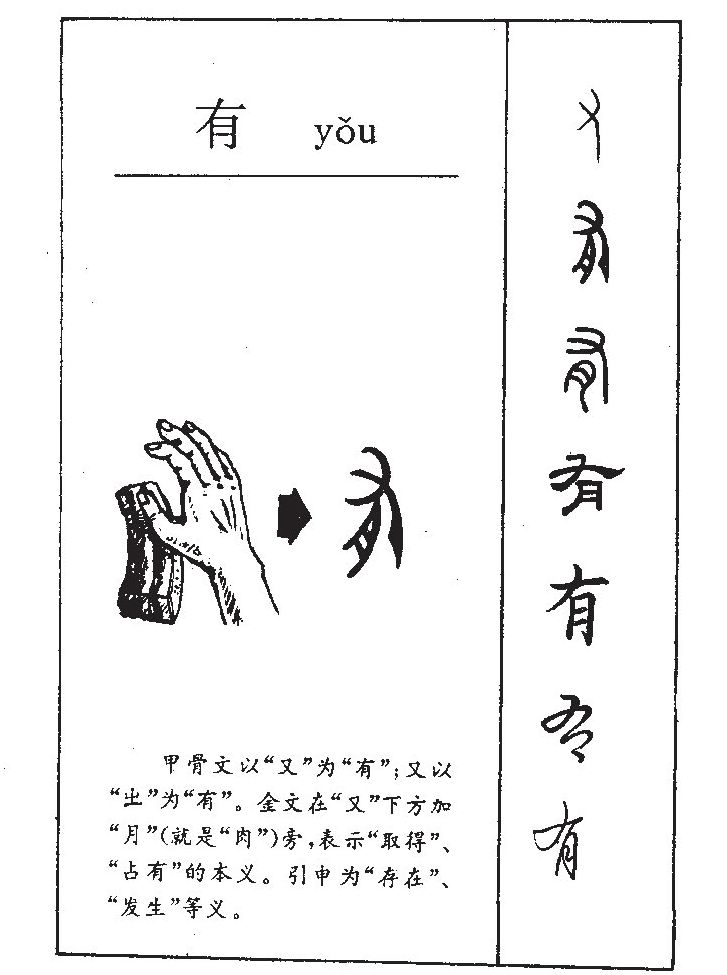 有 yǒu
甲骨文以“又”为“有”；又以
“㞢”为“有”。金文在“又”下方加
“月”(就是“肉”)旁，表示“取得”、
“占有”的本义。引申为“存在”、
“发生”等义。
又
有
有
有
有
有
有